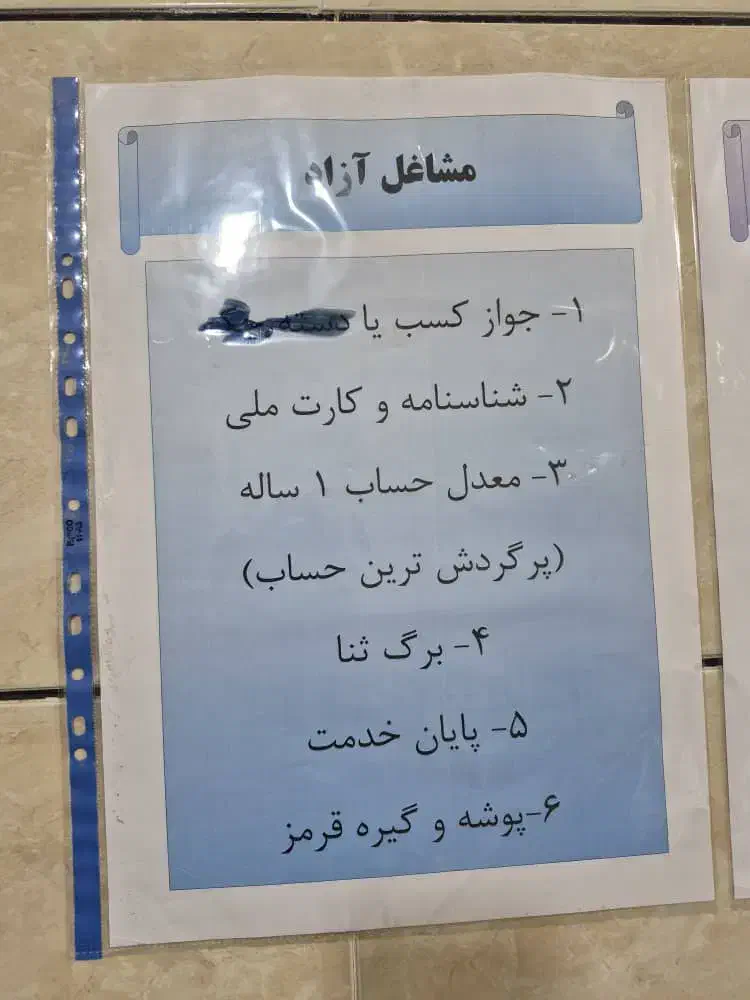 مشاغل آزاد
۱- جواز کسب یا دسته چک
۲- شناسنامه و کارت ملی
۳- معدل حساب ۱ ساله
(پرگردش ترین حساب)
۴- برگ ثنا
۵- پایان خدمت
۶-پوشه و گیره قرمز